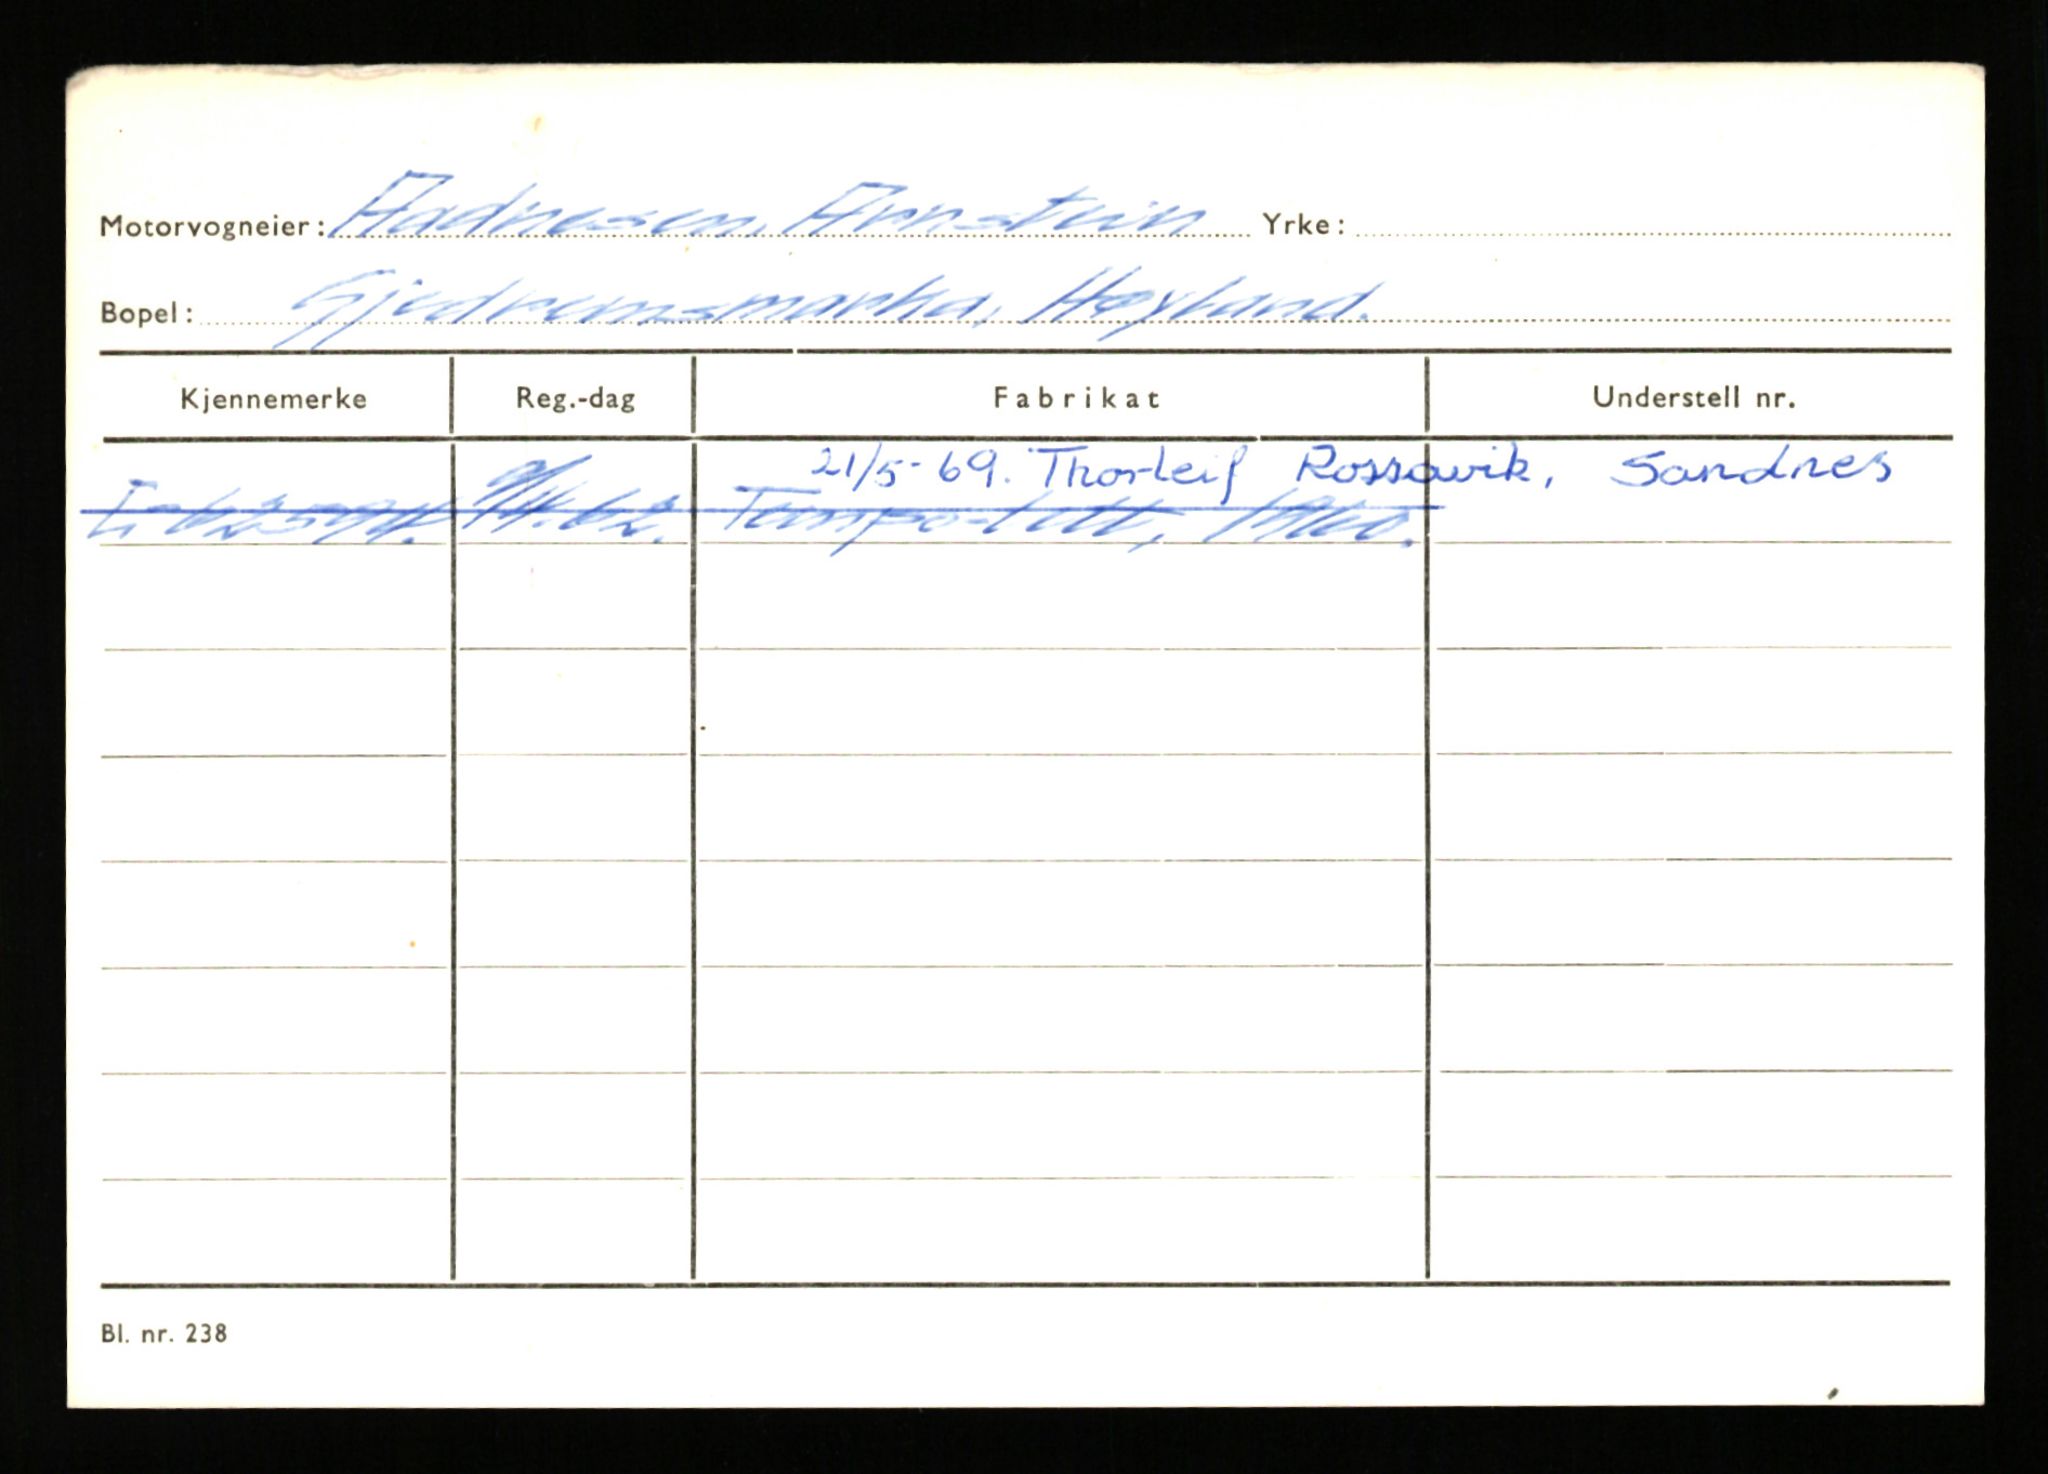 Motorvogneier: Aadnesen, Arnstein Yrke:
Bopel: Gjedremsmarka, Høyland.
Kjennemerke Reg.-dag Fabrikat Understell nr.
21/5-69. Thorleif Rossavik, Sandnes
Tempo-lett, 1960.
Bl. nr. 238